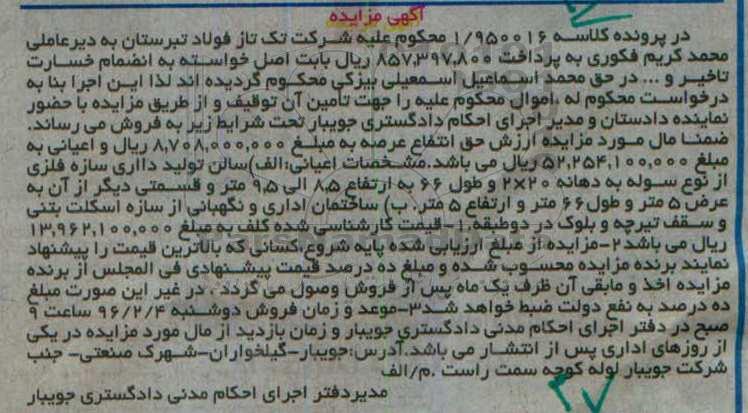 آگهی مزایده
در پرونده کلاسه ۱/۹۵۰۰۱۶ محکوم علیه شرکت تک تاز فولاد تبرستان به دیرعاملی
محمد کریم فکوری به پرداخت ۸۵۷,۳۹۷,۸۰۰ ریال بابت اصل خواسته به انضمام خسارت
تاخیر و ... در حق محمد اسماعیل اسمعیلی بیزکی محکوم گردیده اند لذا این اجرا بنا به
درخواست محکوم له ,اموال محکوم علیه را جهت تامین آن توقیف و از طریق مزایده با حضور
نماینده دادستان و مدیر اجرای احکام دادگستری جویبار تحت شرایط زیر به فروش می رساند.
ضمنا مال مورد مزایده ارزش حق انتفاع عرصه به مبلغ ۸,۷۰۸,۰۰۰,۰۰۰ ریال و اعیانی به
مبلغ ۵۲,۲۵۴,۱۰۰,۰۰۰ ریال می باشد.مشخصات اعیانی:الف)سالن تولید دااری سازه فلزی
از نوع سوله به دهانه ۲×۲۰ و طول ۶۶ به ارتفاع ۸,۵ الی ۹,۵ متر و قسمتی دیگر از آن به
عرض ۵ متر و طول۶۶ متر و ارتفاع ۵ متر. ب) ساختمان اداری و نگهبانی از سازه اسکلت بتنی
و سقف تیرچه و بلوک در دوطبقه.۱-قیمت کارشناسی شده کلف به مبلغ ۱۳,۹۶۲,۱۰۰,۰۰۰
ریال می باشد ۲-مزایده از مبلغ ارزیابی شده پایه شروع,کسانی که بالاترین قیمت را پیشنهاد
نمایند برنده مزایده محسوب شده و مبلغ ده درصد قیمت پیشنهادی فی المجلس از برنده
مزایده اخذ و مابقی آن ظرف یک ماه پس از فروش وصول می گردد , در غیر این صورت مبلغ
ده درصد به نفع دولت ضبط خواهد شد۳-موعد و زمان فروش دوشنبه ۹۶/۲/۴ ساعت ۹
صبح در دفتر اجرای احکام مدنی دادگستری جویبار و زمان بازدید از مال مورد مزایده در یکی
از روزهای اداری پس از انتشار می باشد.آدرس:جویبار-گیلخواران-شهرک صنعتی- جنب
شرکت جویبار لوله کوچه سمت راست .م/الف
مدیردفتر اجرای احکام مدنی دادگستری جویبار